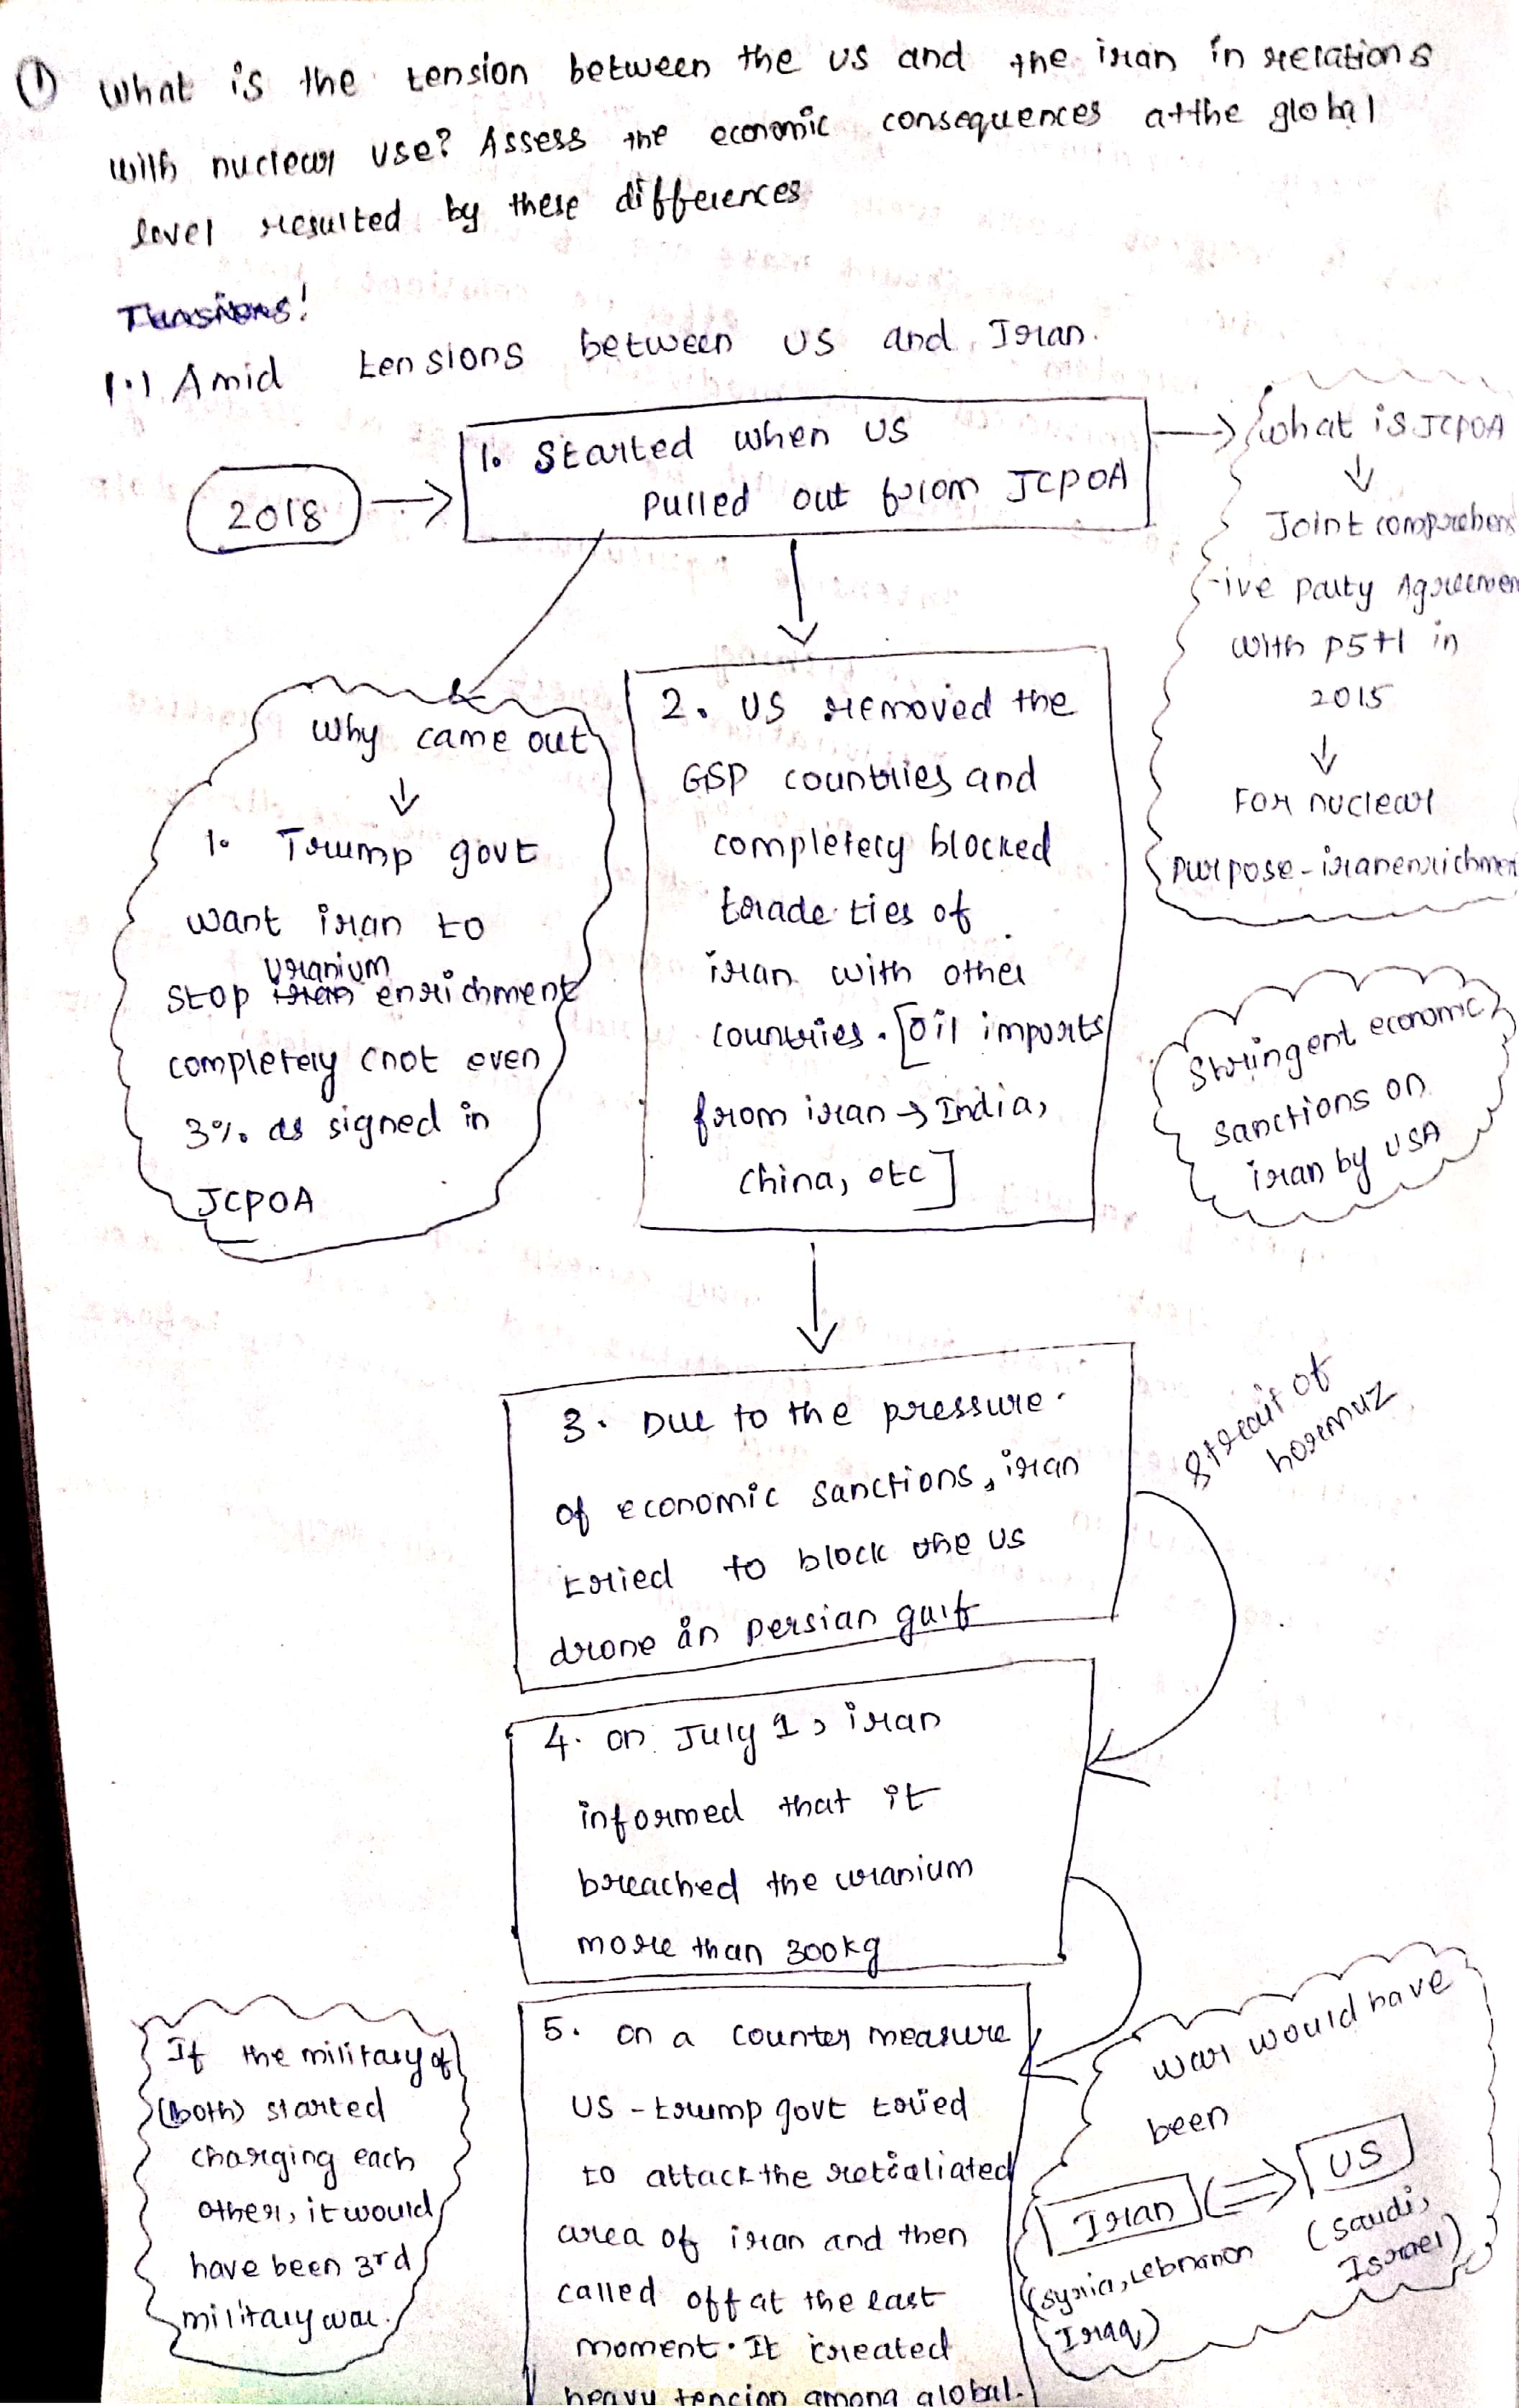 ① What is the tension between the us and the iran in relations
with nuclear use? Assess the economic consequences at the global
level resulted by these differences
Tensions!
1.) Amid tensions between US and Iran.
2018
1. Started when US
pulled out from JCPOA
what is JCPOA
Joint comprehens
-ive party Agreemen
with P5+1 in
2015
For nuclear
purpose - iran enrichmen
Why came out
1. Trump govt
want iran to
uranium
stop iran enrichment
completely (not even
3% as signed in
JCPOA
2. US removed the
GSP countries and
completely blocked
trade ties of
iran with other
countries. [oil imports
from iran → India,
China, etc]
Stringent economic
sanctions on
iran by USA
3. Due to the pressure
of economic sanctions, iran
tried to block the US
drone in persian gulf
straits of
hormuz
4. on July 1, iran
informed that it
breached the uranium
more than 300kg
5. on a counter measure
US - trump govt tried
to attack the retialiated
area of iran and then
called off at the last
moment. It created
heavy tension among global.
If the military of
(both) started
charging each
other, it would
have been 3rd
military war.
war would have
been
Iran ⇔ US
(syria, Lebnanon
Iraq)
(saudi,
Israel)